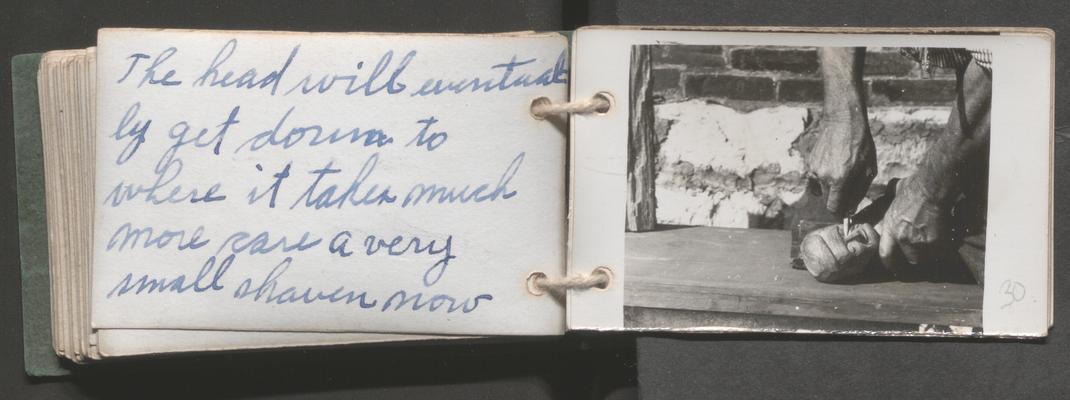 The head will eventual
ly get down to
where it takes much
more care a very
small shaven now
30.